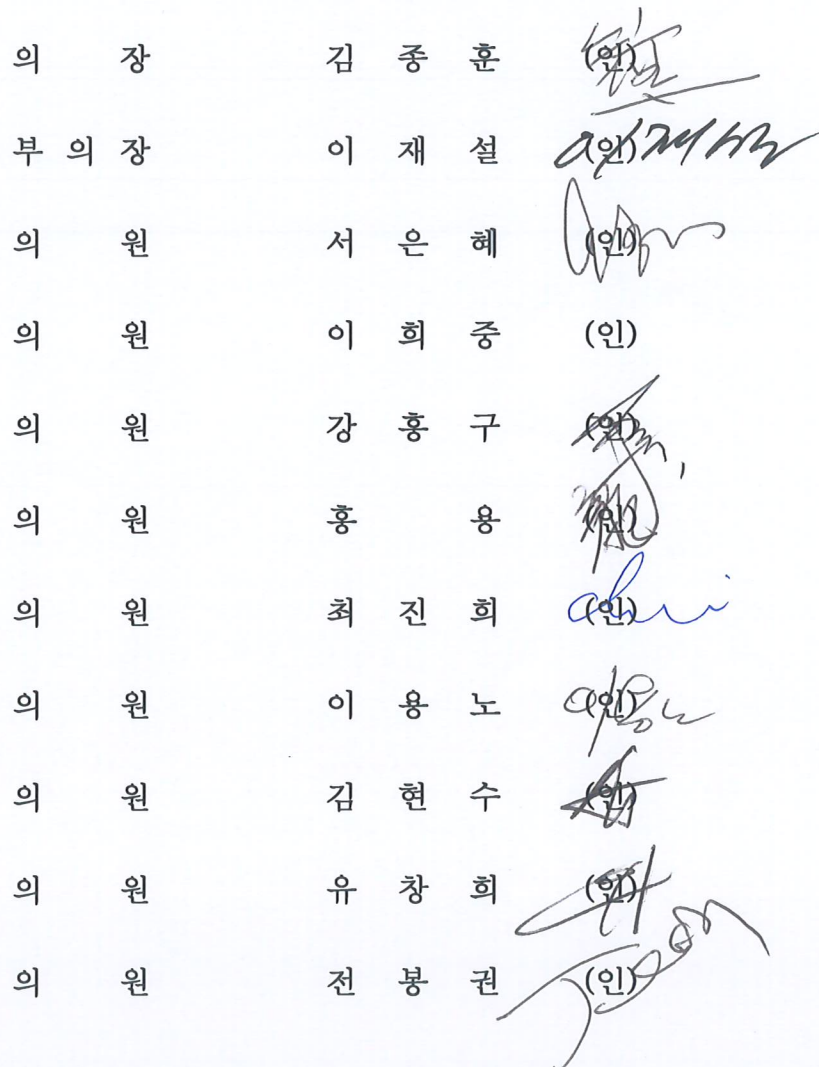 의 장 김 종 훈 (인)
부 의 장 이 재 설 (인) 이재설
의 원 서 은 혜 (인)
의 원 이 희 중 (인)
의 원 강 홍 구 (인)
의 원 홍 용 (인)
의 원 최 진 희 (인)
의 원 이 용 노 (인) 이용노
의 원 김 현 수 (인)
의 원 유 창 희 (인)
의 원 전 봉 권 (인)